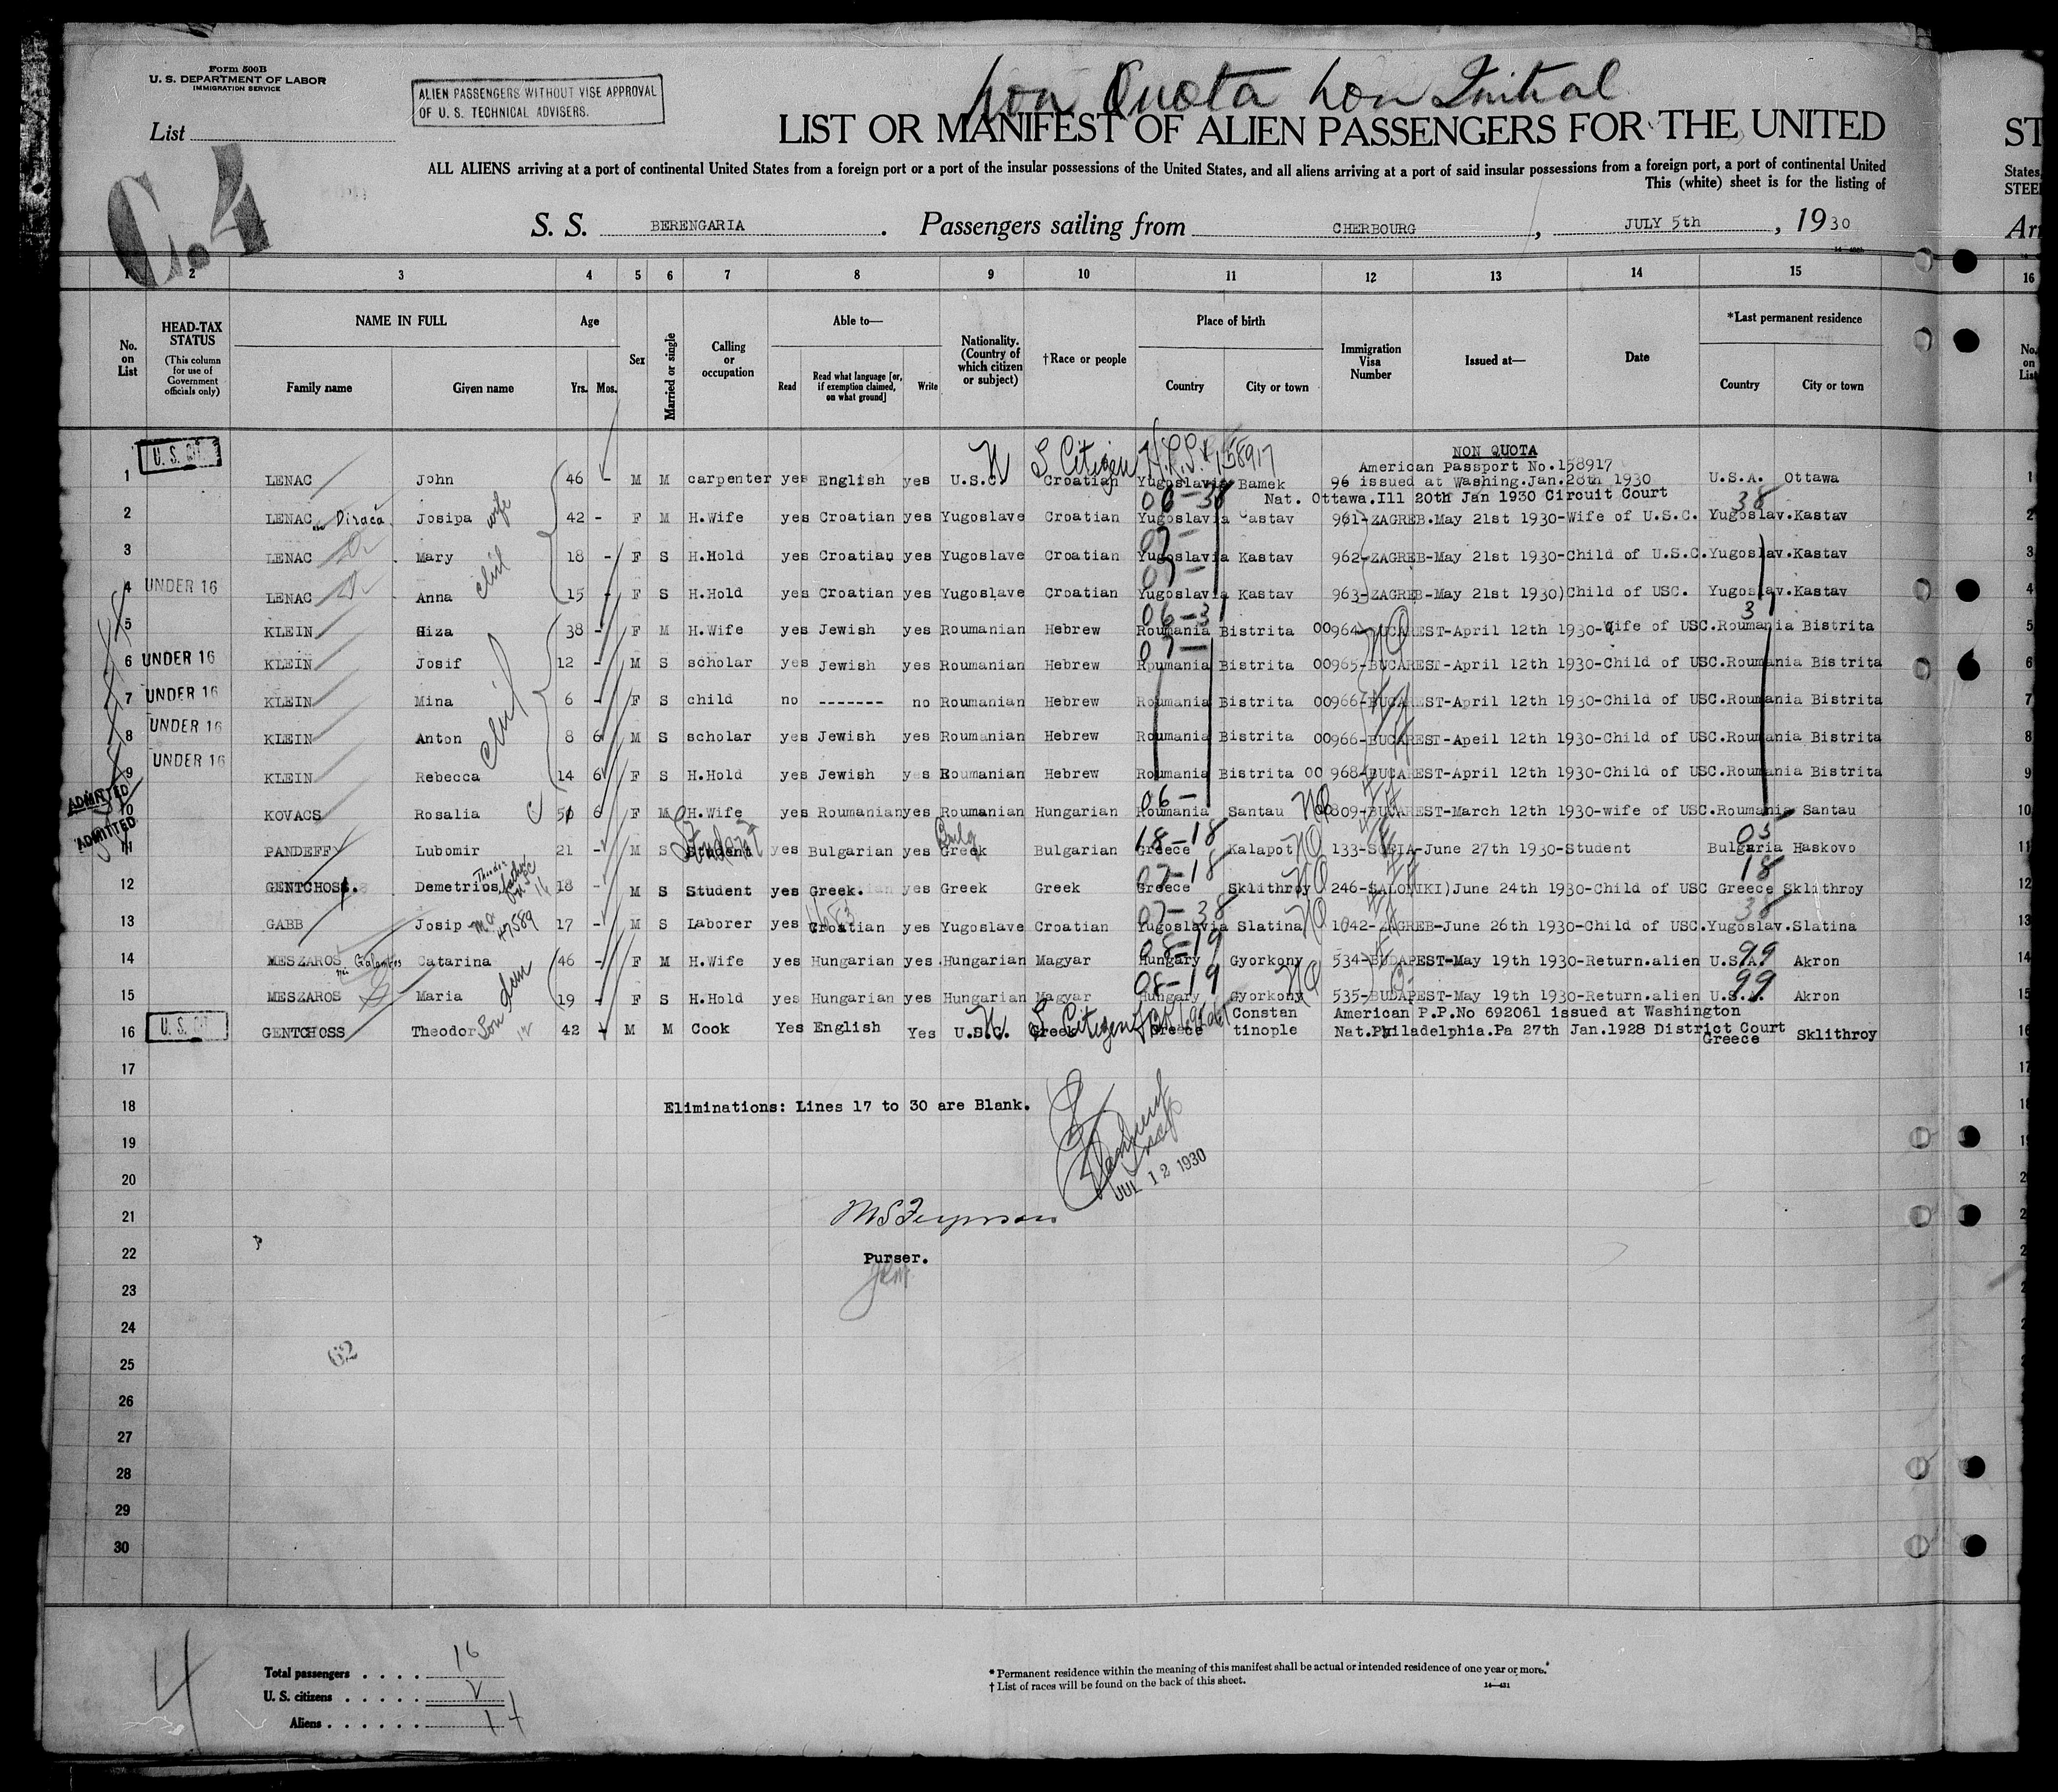 Form 500B
U. S. DEPARTMENT OF LABOR
IMMIGRATION SERVICE
ALIEN PASSENGERS WITHOUT VISE APPROVAL
OF U. S. TECHNICAL ADVISERS.
Non Quota Non Initial
List
LIST OR MANIFEST OF ALIEN PASSENGERS FOR THE UNITED
ST
C.4
ALL ALIENS arriving at a port of continental United States from a foreign port or a port of the insular possessions of the United States, and all aliens arriving at a port of said insular possessions from a foreign port, a port of continental United
States,
This (white) sheet is for the listing of
STEE
S. S. BERENGARIA. Passengers sailing from CHERBOURG, JULY 5th, 1930
Arr
1 2 3 4 5 6 7 8 9 10 11 12 13 14 15 16
No. on List
HEAD-TAX STATUS
(This column for use of Government officials only)
NAME IN FULL
Family name Given name
Age
Yrs. Mos.
Sex
Married or single
Calling or occupation
Able to—
Read
Read what language [or, if exemption claimed, on what ground]
Write
Nationality. (Country of which citizen or subject)
†Race or people
Place of birth
Country City or town
Immigration Visa Number
Issued at—
Date
*Last permanent residence
Country City or town
No. on List
NON QUOTA
U. S. CIT. S. Citizen 158917 American Passport No.158917
1 LENAC John 46 - M M carpenter yes English yes U.S.C. Croatian Yugoslavia Bamek 96 issued at Washing.Jan.28th 1930 U.S.A. Ottawa 1
06-38 Nat. Ottawa.Ill 20th Jan 1930 Circuit Court 38
2 LENAC Josipa wife 42 - F M H.Wife yes Croatian yes Yugoslave Croatian Yugoslavia Castav 961-ZAGREB.May 21st 1930-Wife of U.S.C. Yugoslav.Kastav 2
07-
3 LENAC Mary 18 - F S H.Hold yes Croatian yes Yugoslave Croatian Yugoslavia Kastav 962-ZAGREB-May 21st 1930-Child of U.S.C.Yugoslav.Kastav 3
07-
4 UNDER 16 LENAC Anna 15 - F S H.Hold yes Croatian yes Yugoslave Croatian Yugoslavia Kastav 963-ZAGREB-May 21st 1930)Child of USC. Yugoslav.Kastav 4
06-31 31
5 KLEIN Giza 38 - F M H.Wife yes Jewish yes Roumanian Hebrew Roumania Bistrita 00964-BUCAREST-April 12th 1930-Wife of USC.Roumania Bistrita 5
07-
6 UNDER 16 KLEIN Josif 12 - M S scholar yes Jewish yes Roumanian Hebrew Roumania Bistrita 00965-BUCAREST-April 12th 1930-Child of USC.Roumania Bistrita 6
7 UNDER 16 KLEIN Mina 6 - F S child no ------- no Roumanian Hebrew Roumania Bistrita 00966-BUCAREST-April 12th 1930-Child of USC.Roumania Bistrita 7
8 UNDER 16 KLEIN Anton 8 6 M S scholar yes Jewish yes Roumanian Hebrew Roumania Bistrita 00966-BUCAREST-Apeil 12th 1930-Child of USC.Roumania Bistrita 8
9 UNDER 16 KLEIN Rebecca 14 6 F S H.Hold yes Jewish yes Roumanian Hebrew Roumania Bistrita 00 968-BUCAREST-April 12th 1930-Child of USC.Roumania Bistrita 9
ADMITTED 06-
10 KOVACS Rosalia 50 6 F M H.Wife yes Roumanian yes Roumanian Hungarian Roumania Santau 00809-BUCAREST-March 12th 1930-wife of USC.Roumania Santau 10
ADMITTED Student Bulg 18-18 05
11 PANDEFF Lubomir 21 - M S Student yes Bulgarian yes Greek Bulgarian Greece Kalapot NO 133-SOFIA-June 27th 1930-Student Bulgaria Haskovo 11
07-18 18
12 GENTCHOSS. Demetrios 18 - M S Student yes Greek. yes Greek Greek Greece Sklithroy NO 246-SALONIKI)June 24th 1930-Child of USC Greece Sklithroy 12
47589 07-38 38
13 GABB Josip 17 - M S Laborer yes Croatian yes Yugoslave Croatian Yugoslavia Slatina NO 1042-ZAGREB-June 26th 1930-Child of USC.Yugoslav.Slatina 13
08-19 99
14 MESZAROS Catarina 46 - F M H.Wife yes Hungarian yes Hungarian Magyar Hungary Gyorkony 534-BUDAPEST-May 19th 1930-Return.alien U.S.A. Akron 14
08-19 NO 99
15 MESZAROS Maria 19 - F S H.Hold yes Hungarian yes Hungarian Magyar Hungary Gyorkony 535-BUDAPEST-May 19th 1930-Return.alien U.S.A. Akron 15
U. S. CIT. S. Citizen Constan American P.P.No 692061 issued at Washington
16 GENTCHOSS Theodor 42 - M M Cook Yes English Yes U.S.C. Greek Greece tinople Nat.Philadelphia.Pa 27th Jan.1928 District Court Greece Sklithroy 16
17
18 Eliminations: Lines 17 to 30 are Blank.
19
20 JUL 12 1930
21
22 Purser.
23
24
25 62
26
27
28
29
30
4
Total passengers . . . . 16
U. S. citizens . . . . . 2
Aliens . . . . . . 14
* Permanent residence within the meaning of this manifest shall be actual or intended residence of one year or more.
† List of races will be found on the back of this sheet.